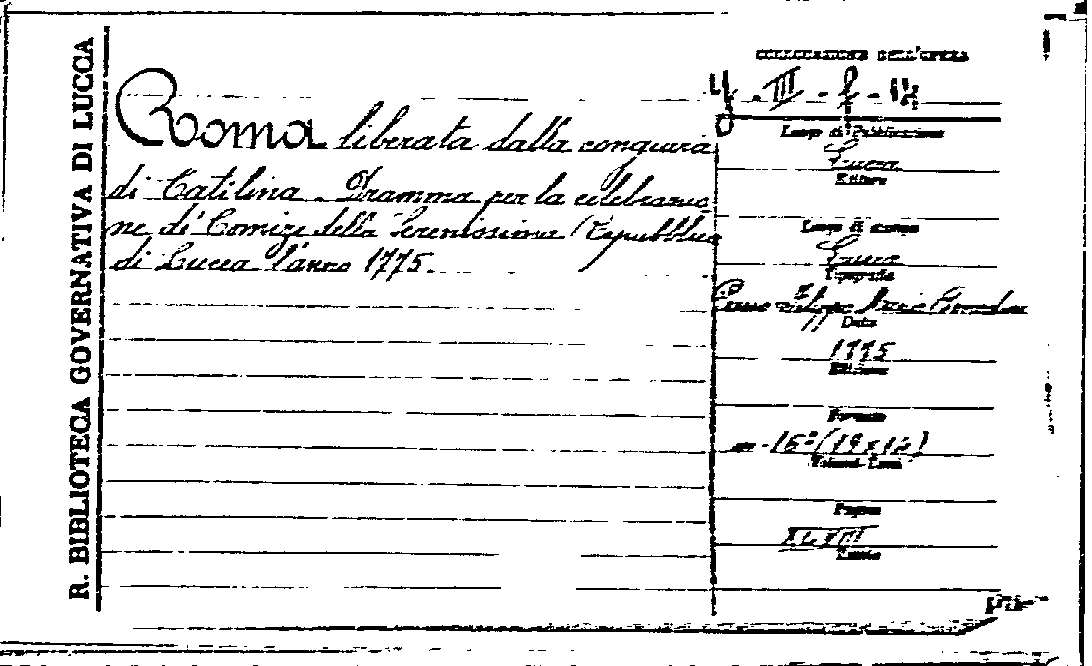 R. BIBLIOTECA GOVERNATIVA DI LUCCA
Roma liberata dalla congiura
di Catilina. Dramma per la celebrazio
ne di Comizi della Serenissima Repubblica
di Lucca l'anno 1775.
COLLOCAZIONE DELL'OPERA
III
Luogo di Pubblicazione
Lucca
Editore
Luogo di stampa
Lucca
Tipografia
Filippo Maria
Data
1775
Edizione
Formato
in-16° (19x12)
Volumi-Tomi
Pagine
XLVIII